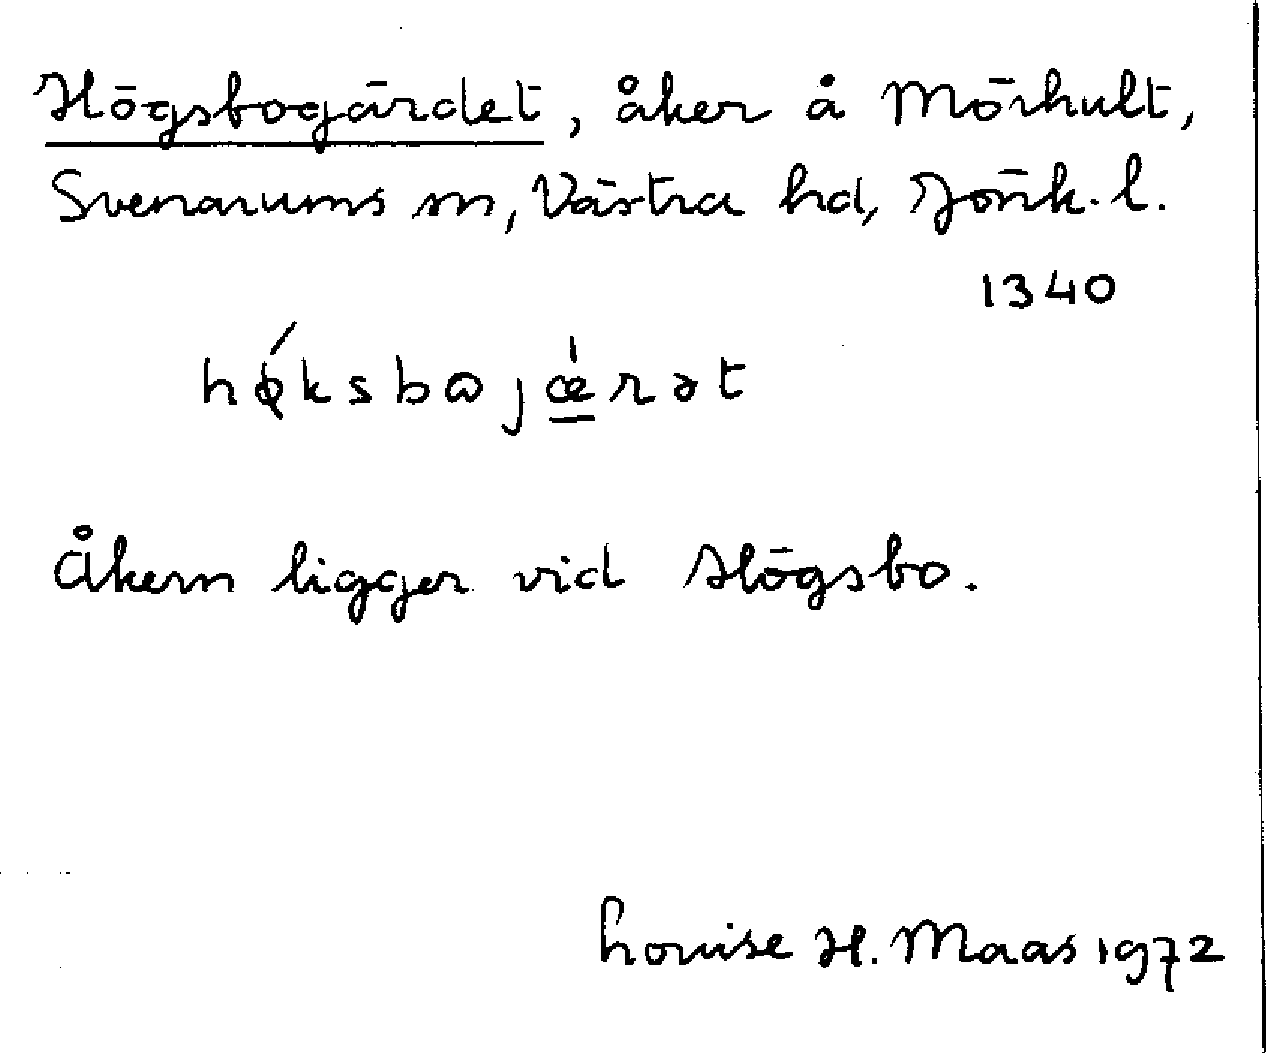 Högsbogärdet, åker å Mörhult,
Svenarums sn, Västra hd, Jönk. l.
1340
hǿksbɷjæ̲̍rət
Åkern ligger vid Högsbo.
Louise H. Maas 1972